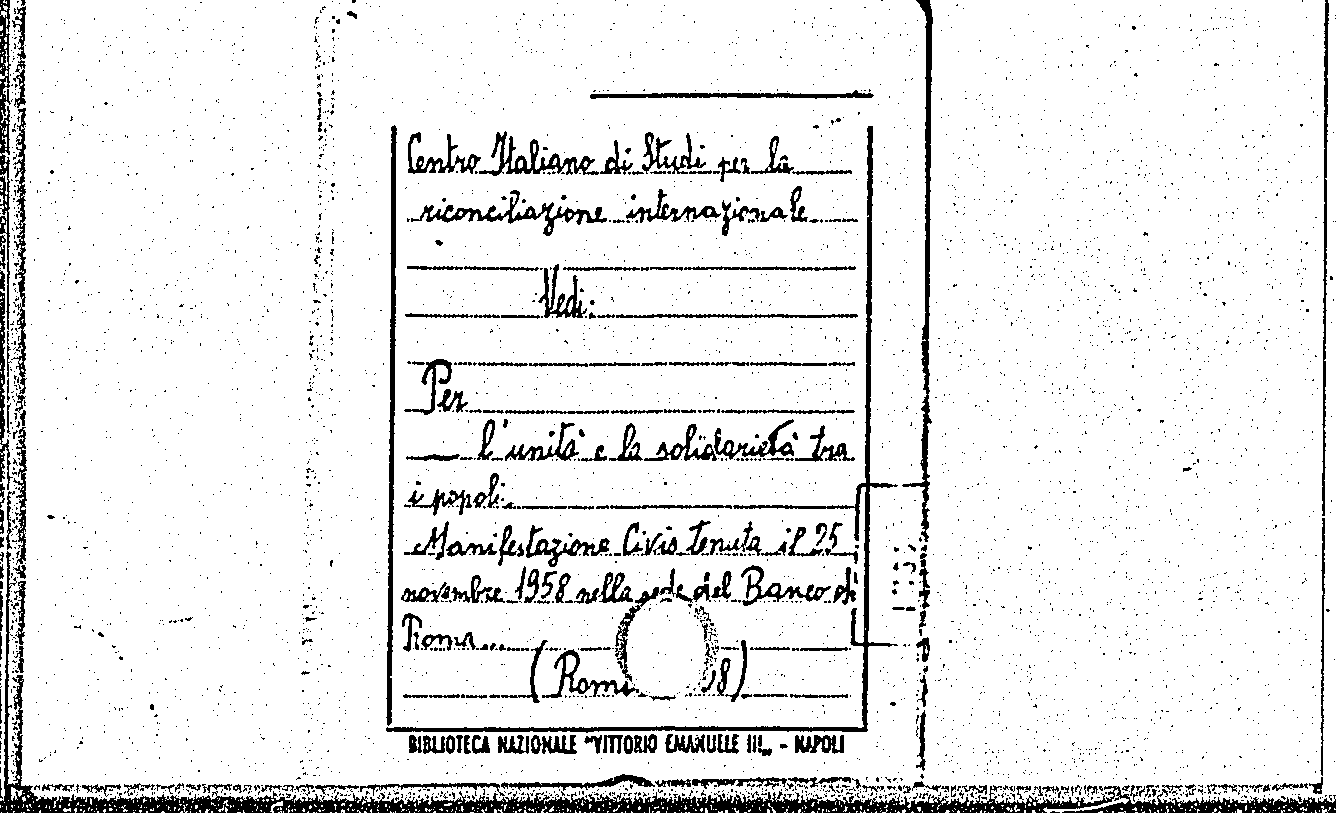 Centro Italiano di Studi per la
riconciliazione internazionale
Vedi:
Per
l'unità e la solidarietà tra
i popoli.
Manifestazione Civis tenuta il 25
novembre 1958 nella sede del Banco di
Roma...
(Roma 58)
BIBLIOTECA NAZIONALE "VITTORIO EMANUELE III„ - NAPOLI